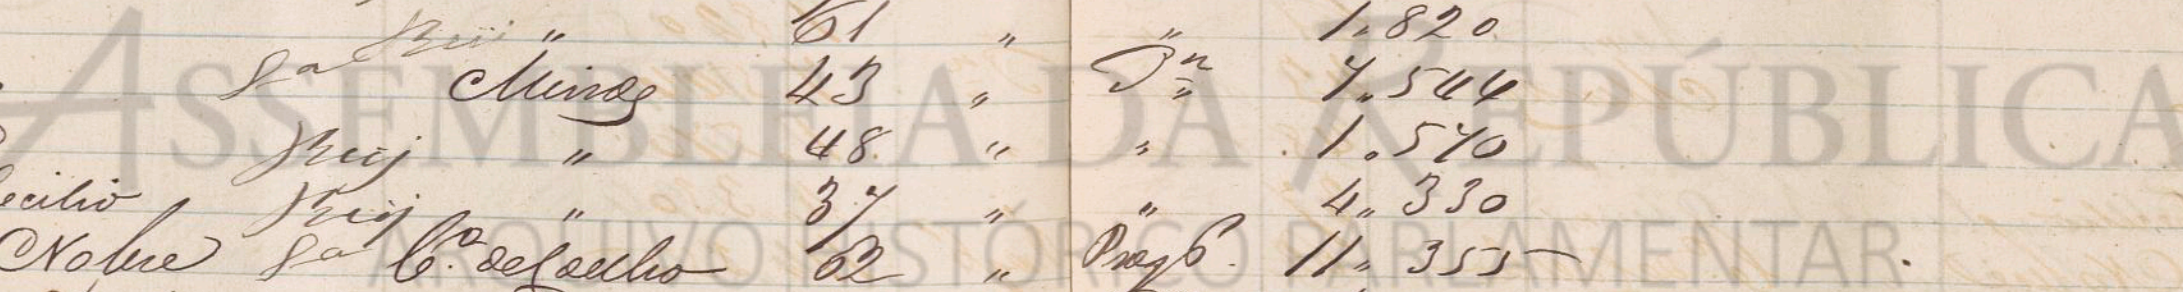 Rej " 61 " " 1.820
Sa Minas 43 " Pn 7.544
Rej " 48 " " 1.570
ecilio Rej " 37 " " 4.330
Nobre Sa Cº de Coelho 62 " Progo. 11.355
ASSEMBLEIA DA REPÚBLICA
ARQUIVO HISTÓRICO PARLAMENTAR